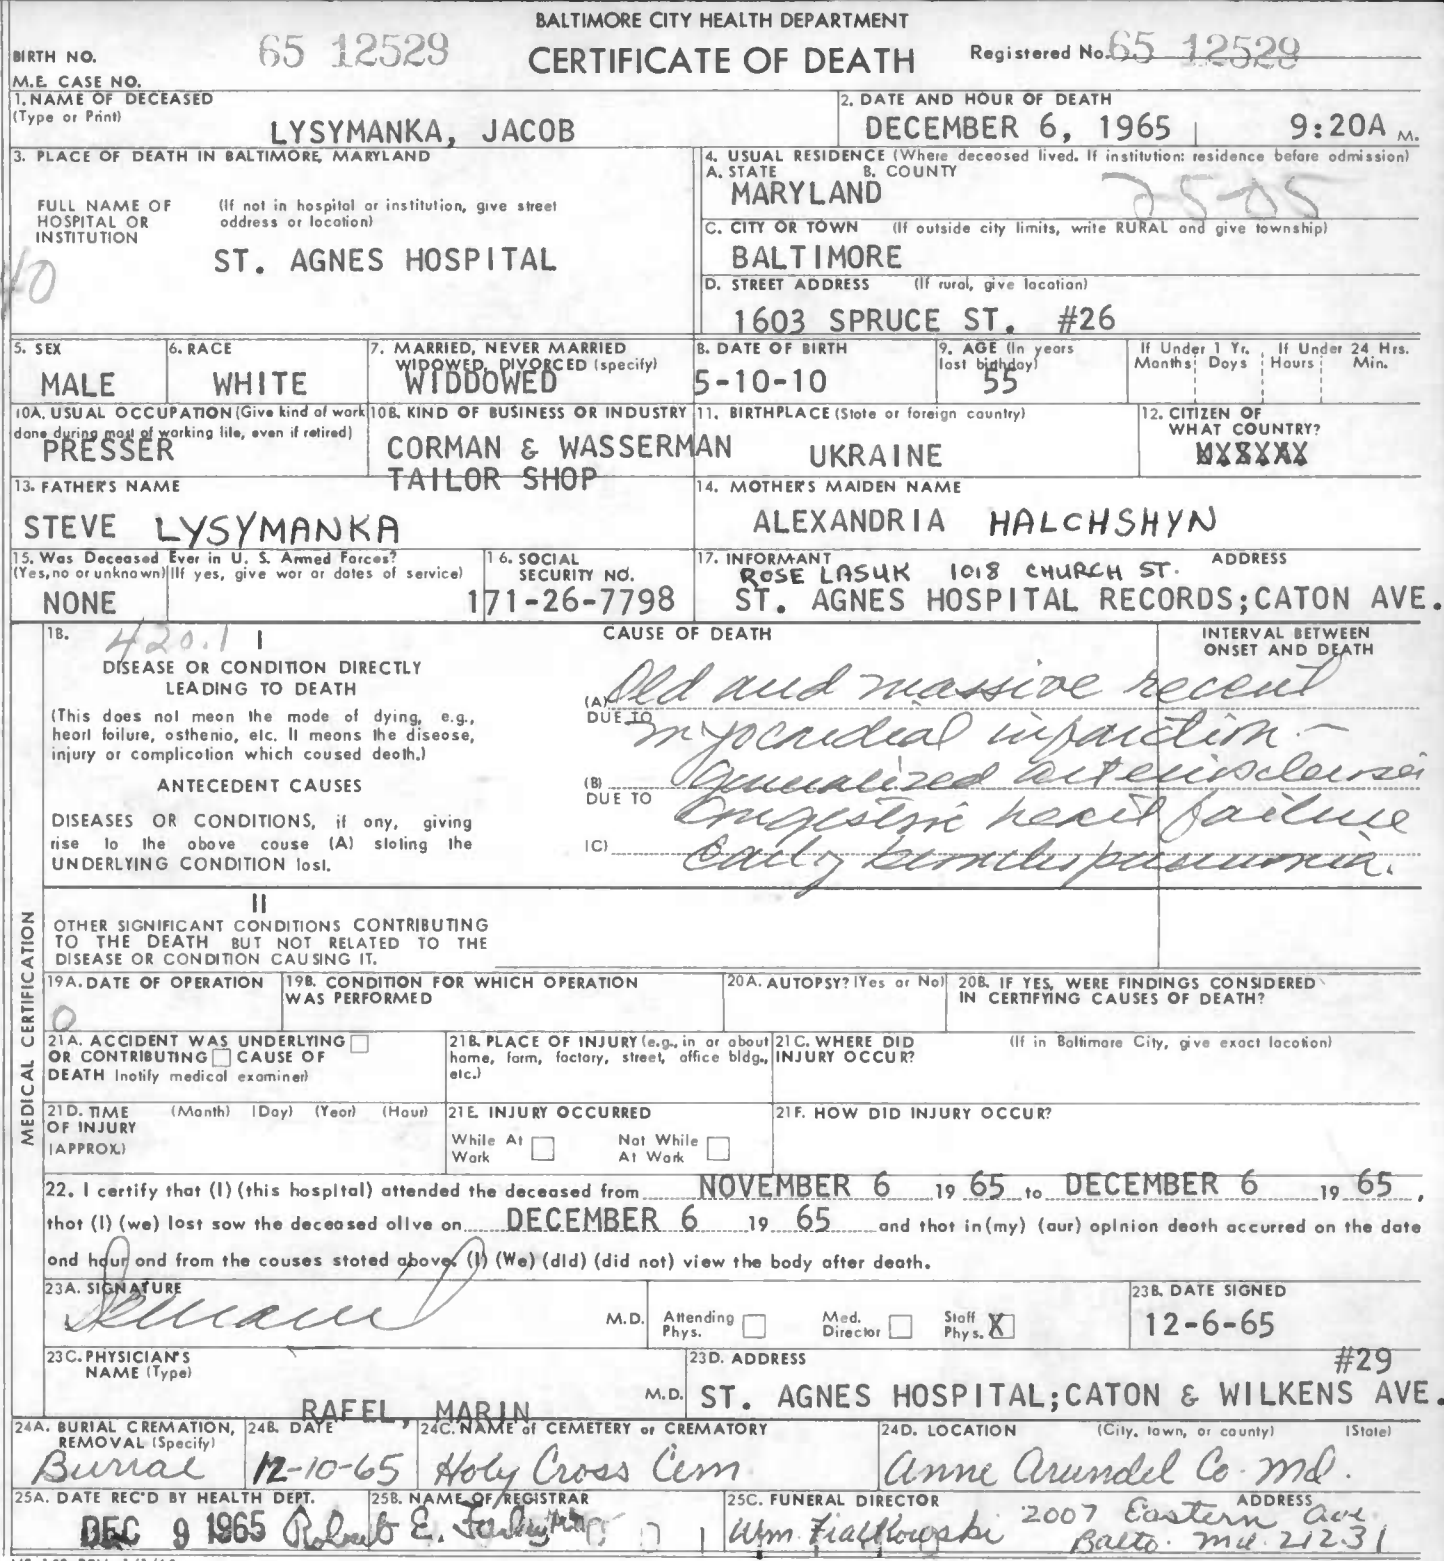 BALTIMORE CITY HEALTH DEPARTMENT
BIRTH NO. 65 12529 CERTIFICATE OF DEATH Registered No. 65 12529
M.E. CASE NO.
1. NAME OF DECEASED (Type or Print) LYSYMANKA, JACOB
2. DATE AND HOUR OF DEATH DECEMBER 6, 1965 9:20A M.
3. PLACE OF DEATH IN BALTIMORE, MARYLAND
FULL NAME OF HOSPITAL OR INSTITUTION (If not in hospital or institution, give street address or location)
ST. AGNES HOSPITAL
40
4. USUAL RESIDENCE (Where deceased lived. If institution: residence before admission)
A. STATE B. COUNTY
MARYLAND 25-05
C. CITY OR TOWN (If outside city limits, write RURAL and give township)
BALTIMORE
D. STREET ADDRESS (If rural, give location)
1603 SPRUCE ST. #26
5. SEX MALE
6. RACE WHITE
7. MARRIED, NEVER MARRIED WIDOWED, DIVORCED (specify) WIDDOWED
8. DATE OF BIRTH 5-10-10
9. AGE (In years last birthday) 55
If Under 1 Yr. Months Days If Under 24 Hrs. Hours Min.
10A. USUAL OCCUPATION (Give kind of work done during most of working life, even if retired) PRESSER
10B. KIND OF BUSINESS OR INDUSTRY CORMAN & WASSERMAN TAILOR SHOP
11. BIRTHPLACE (State or foreign country) UKRAINE
12. CITIZEN OF WHAT COUNTRY?
13. FATHER'S NAME STEVE LYSYMANKA
14. MOTHER'S MAIDEN NAME ALEXANDRIA HALCHSHYN
15. Was Deceased Ever in U. S. Armed Forces? (Yes, no or unknown) (If yes, give war or dates of service) NONE
16. SOCIAL SECURITY NO. 171-26-7798
17. INFORMANT ADDRESS
ROSE LASUK 1018 CHURCH ST.
ST. AGNES HOSPITAL RECORDS;CATON AVE.
MEDICAL CERTIFICATION
18. 420.1 I CAUSE OF DEATH INTERVAL BETWEEN ONSET AND DEATH
DISEASE OR CONDITION DIRECTLY LEADING TO DEATH
(This does not mean the mode of dying, e.g., heart failure, asthenia, etc. It means the disease, injury or complication which caused death.)
ANTECEDENT CAUSES
DISEASES OR CONDITIONS, if any, giving rise to the above cause (A) stating the UNDERLYING CONDITION last.
(A) Old and massive recent
DUE TO myocardial infarction -
(B) Generalized arteriosclerosis
DUE TO Congestive heart failure
(C) Early bronchopneumonia.
II
OTHER SIGNIFICANT CONDITIONS CONTRIBUTING TO THE DEATH BUT NOT RELATED TO THE DISEASE OR CONDITION CAUSING IT.
19A. DATE OF OPERATION 0
19B. CONDITION FOR WHICH OPERATION WAS PERFORMED
20A. AUTOPSY? (Yes or No)
20B. IF YES, WERE FINDINGS CONSIDERED IN CERTIFYING CAUSES OF DEATH?
21A. ACCIDENT WAS UNDERLYING OR CONTRIBUTING CAUSE OF DEATH (notify medical examiner)
21B. PLACE OF INJURY (e.g., in or about home, farm, factory, street, office bldg., etc.)
21C. WHERE DID INJURY OCCUR? (If in Baltimore City, give exact location)
21D. TIME OF INJURY (APPROX.) (Month) (Day) (Year) (Hour)
21E. INJURY OCCURRED While At Work Not While At Work
21F. HOW DID INJURY OCCUR?
22. I certify that (I) (this hospital) attended the deceased from NOVEMBER 6 19 65 to DECEMBER 6 19 65,
that (I) (we) last saw the deceased alive on DECEMBER 6 19 65 and that in (my) (our) opinion death occurred on the date
and hour and from the causes stated above. (I) (We) (did) (did not) view the body after death.
23A. SIGNATURE M.D. Attending Phys. Med. Director Staff Phys. X
23B. DATE SIGNED 12-6-65
23C. PHYSICIAN'S NAME (Type) RAFEL, MARIN M.D.
23D. ADDRESS #29
ST. AGNES HOSPITAL;CATON & WILKENS AVE.
24A. BURIAL CREMATION, REMOVAL (Specify) Burial
24B. DATE 12-10-65
24C. NAME of CEMETERY or CREMATORY Holy Cross Cem
24D. LOCATION (City, town, or county) (State) Anne Arundel Co. Md.
25A. DATE REC'D BY HEALTH DEPT. DEC 9 1965
25B. NAME OF REGISTRAR Robert E. Farley
25C. FUNERAL DIRECTOR ADDRESS
Wm. Fialkowski 2007 Eastern Ave.
Balto. Md. 21231